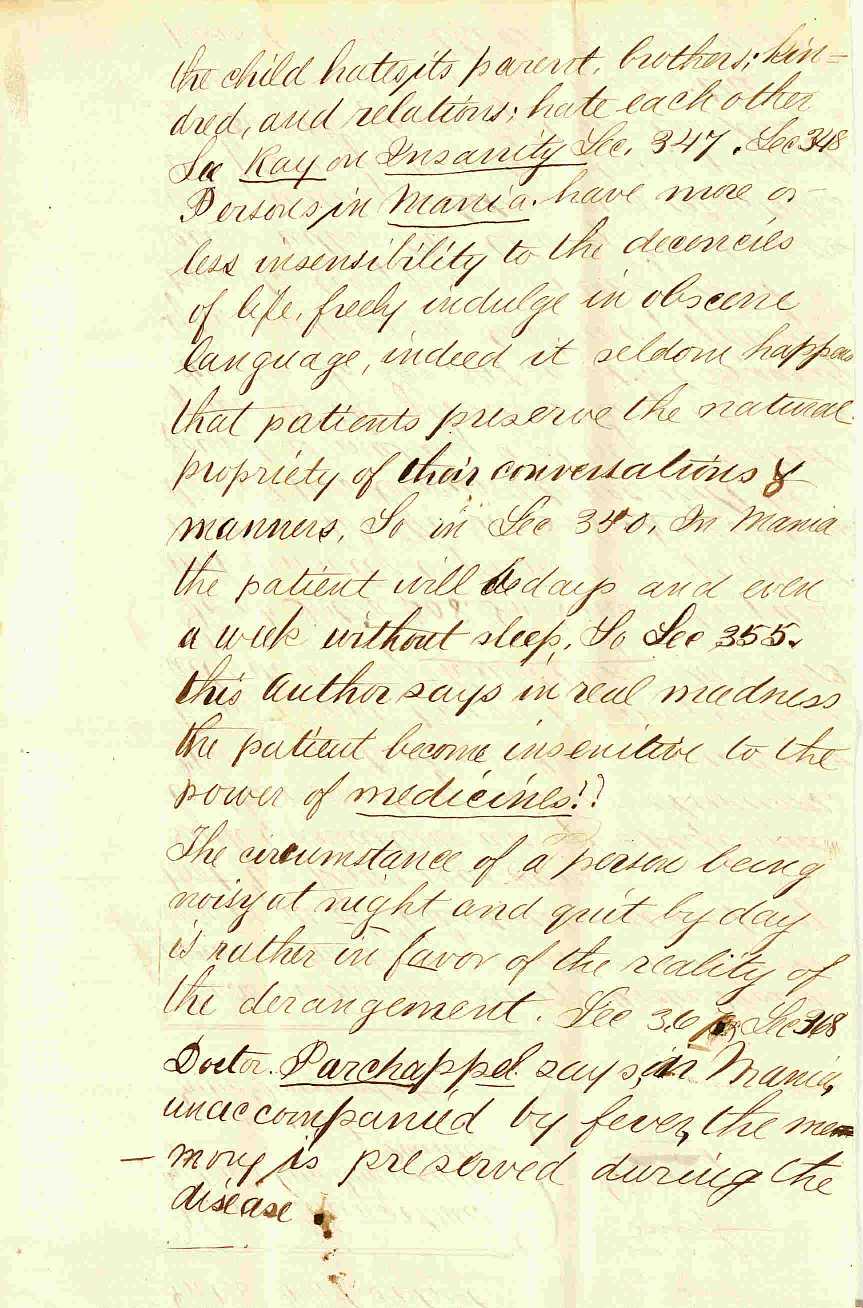 the child hates its parent, brothers; kin=
dred, and relations; hate each other
See Ray on Insanity Sec. 347. Sec 348
Persons in Mania. have more or
less insensibility to the decencies
of life, freely indulge in obscene
language, indeed it seldom happens
that patients preserve the natural
propriety of their conversations &
manners. So in Sec 340. In Mania
the patient will days and even
a week without sleep. So Sec 355.
this author says in real madness
the patient become insenitive to the
power of medicines!?
The circumstance of a person being
noisy at night and quit by day
is rather in favor of the reality of
the derangement. Sec Sec 368
Doctor. Parchappel says, in Mania,
unaccompanied by fever, the mem
mory is preserved during the
disease